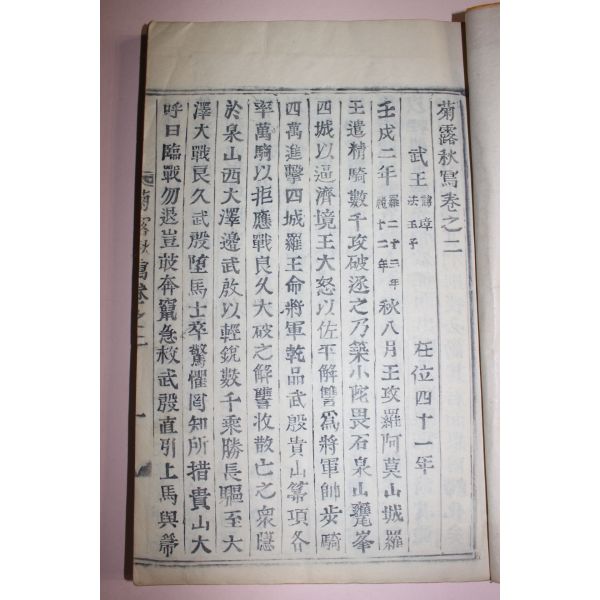 菊露秋寫卷之二
武王 諱璋 法王子 在位四十一年
壬戌二年 羅二十三年 麗十二年 秋八月王攻羅阿莫山城羅
王遣精騎數千攻破逐之乃築小陀畏石泉山甕峯
四城以逼濟境王大怒以佐平解讐爲將軍帥步騎
四萬進擊四城羅王命將軍乾品武殷貴山箒項各
率萬騎以拒應戰良久大破之解讐收散亡之衆隱
於泉山西大澤邊武殷以輕銳數千乘勝長驅至大
澤大戰良久武殷墮馬士卒驚懼罔知所措貴山大
呼曰臨戰勿退豈敢奔竄急救武殷直引上馬與箒
菊露秋寫卷之二 一